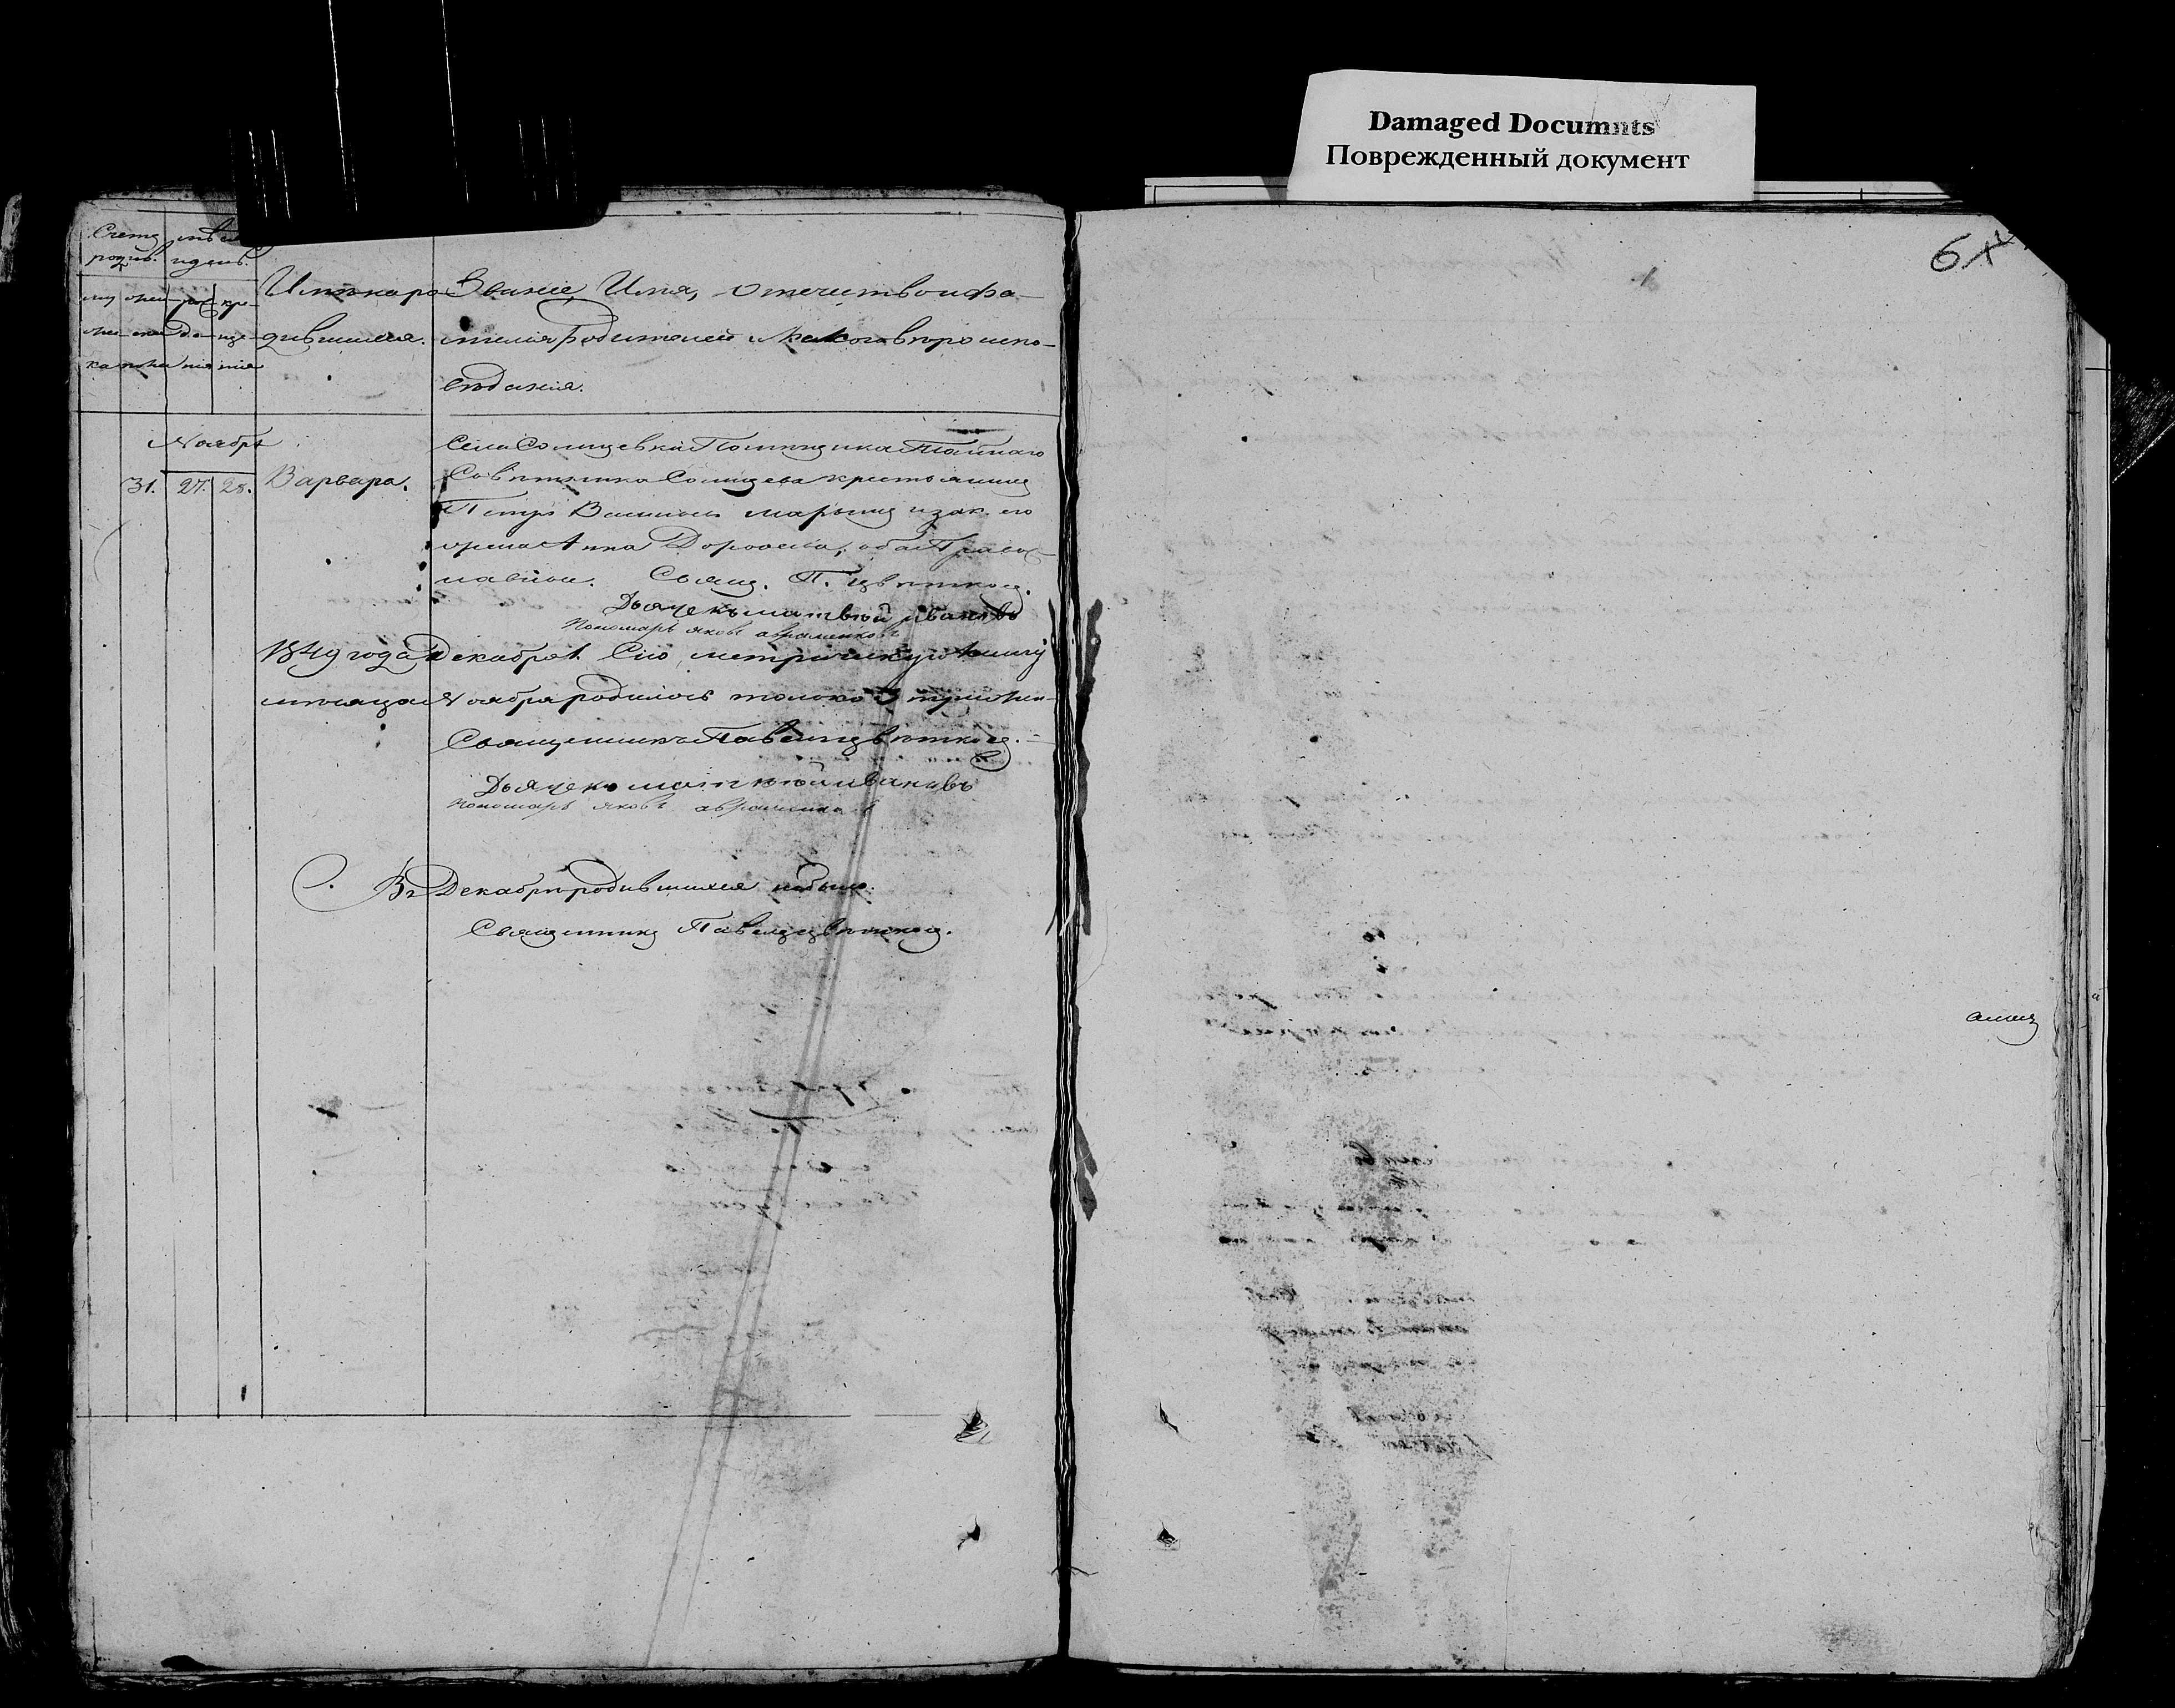 Damaged Documnts
Поврежденный документ
6
Счетъ
родив.
и день.
му жес ро кре
же ска до ще
ска пола нія нія
Имена ро
дившихся.
Званіе, Имя, Отечество и фа
милія Родителей и какого вѣроиспо
вѣданія.
Ноябрь
31. 27. 28. Варвара.
Села Солнцевки Помѣщика Тайнаго
Совѣтника Солнцева крестьянинъ
Петръ Васильевъ и зак. его
жена Анна Дороѳеева, оба Правос
лавные. Свящ. П. Цвѣтковъ.
Дьячекъ матвѣй ивановъ
Пономарь яковъ авраменковъ
1849 года Декабря 1. Сію метрическую книгу
мѣсяца Ноября родилось только
Священникъ Павелъ Цвѣтковъ.
Дьячекъ матвѣй ивановъ
пономарь яковъ авраменковъ
Въ Декабрѣ родившихся небыло.
Священникъ Павелъ Цвѣтковъ.